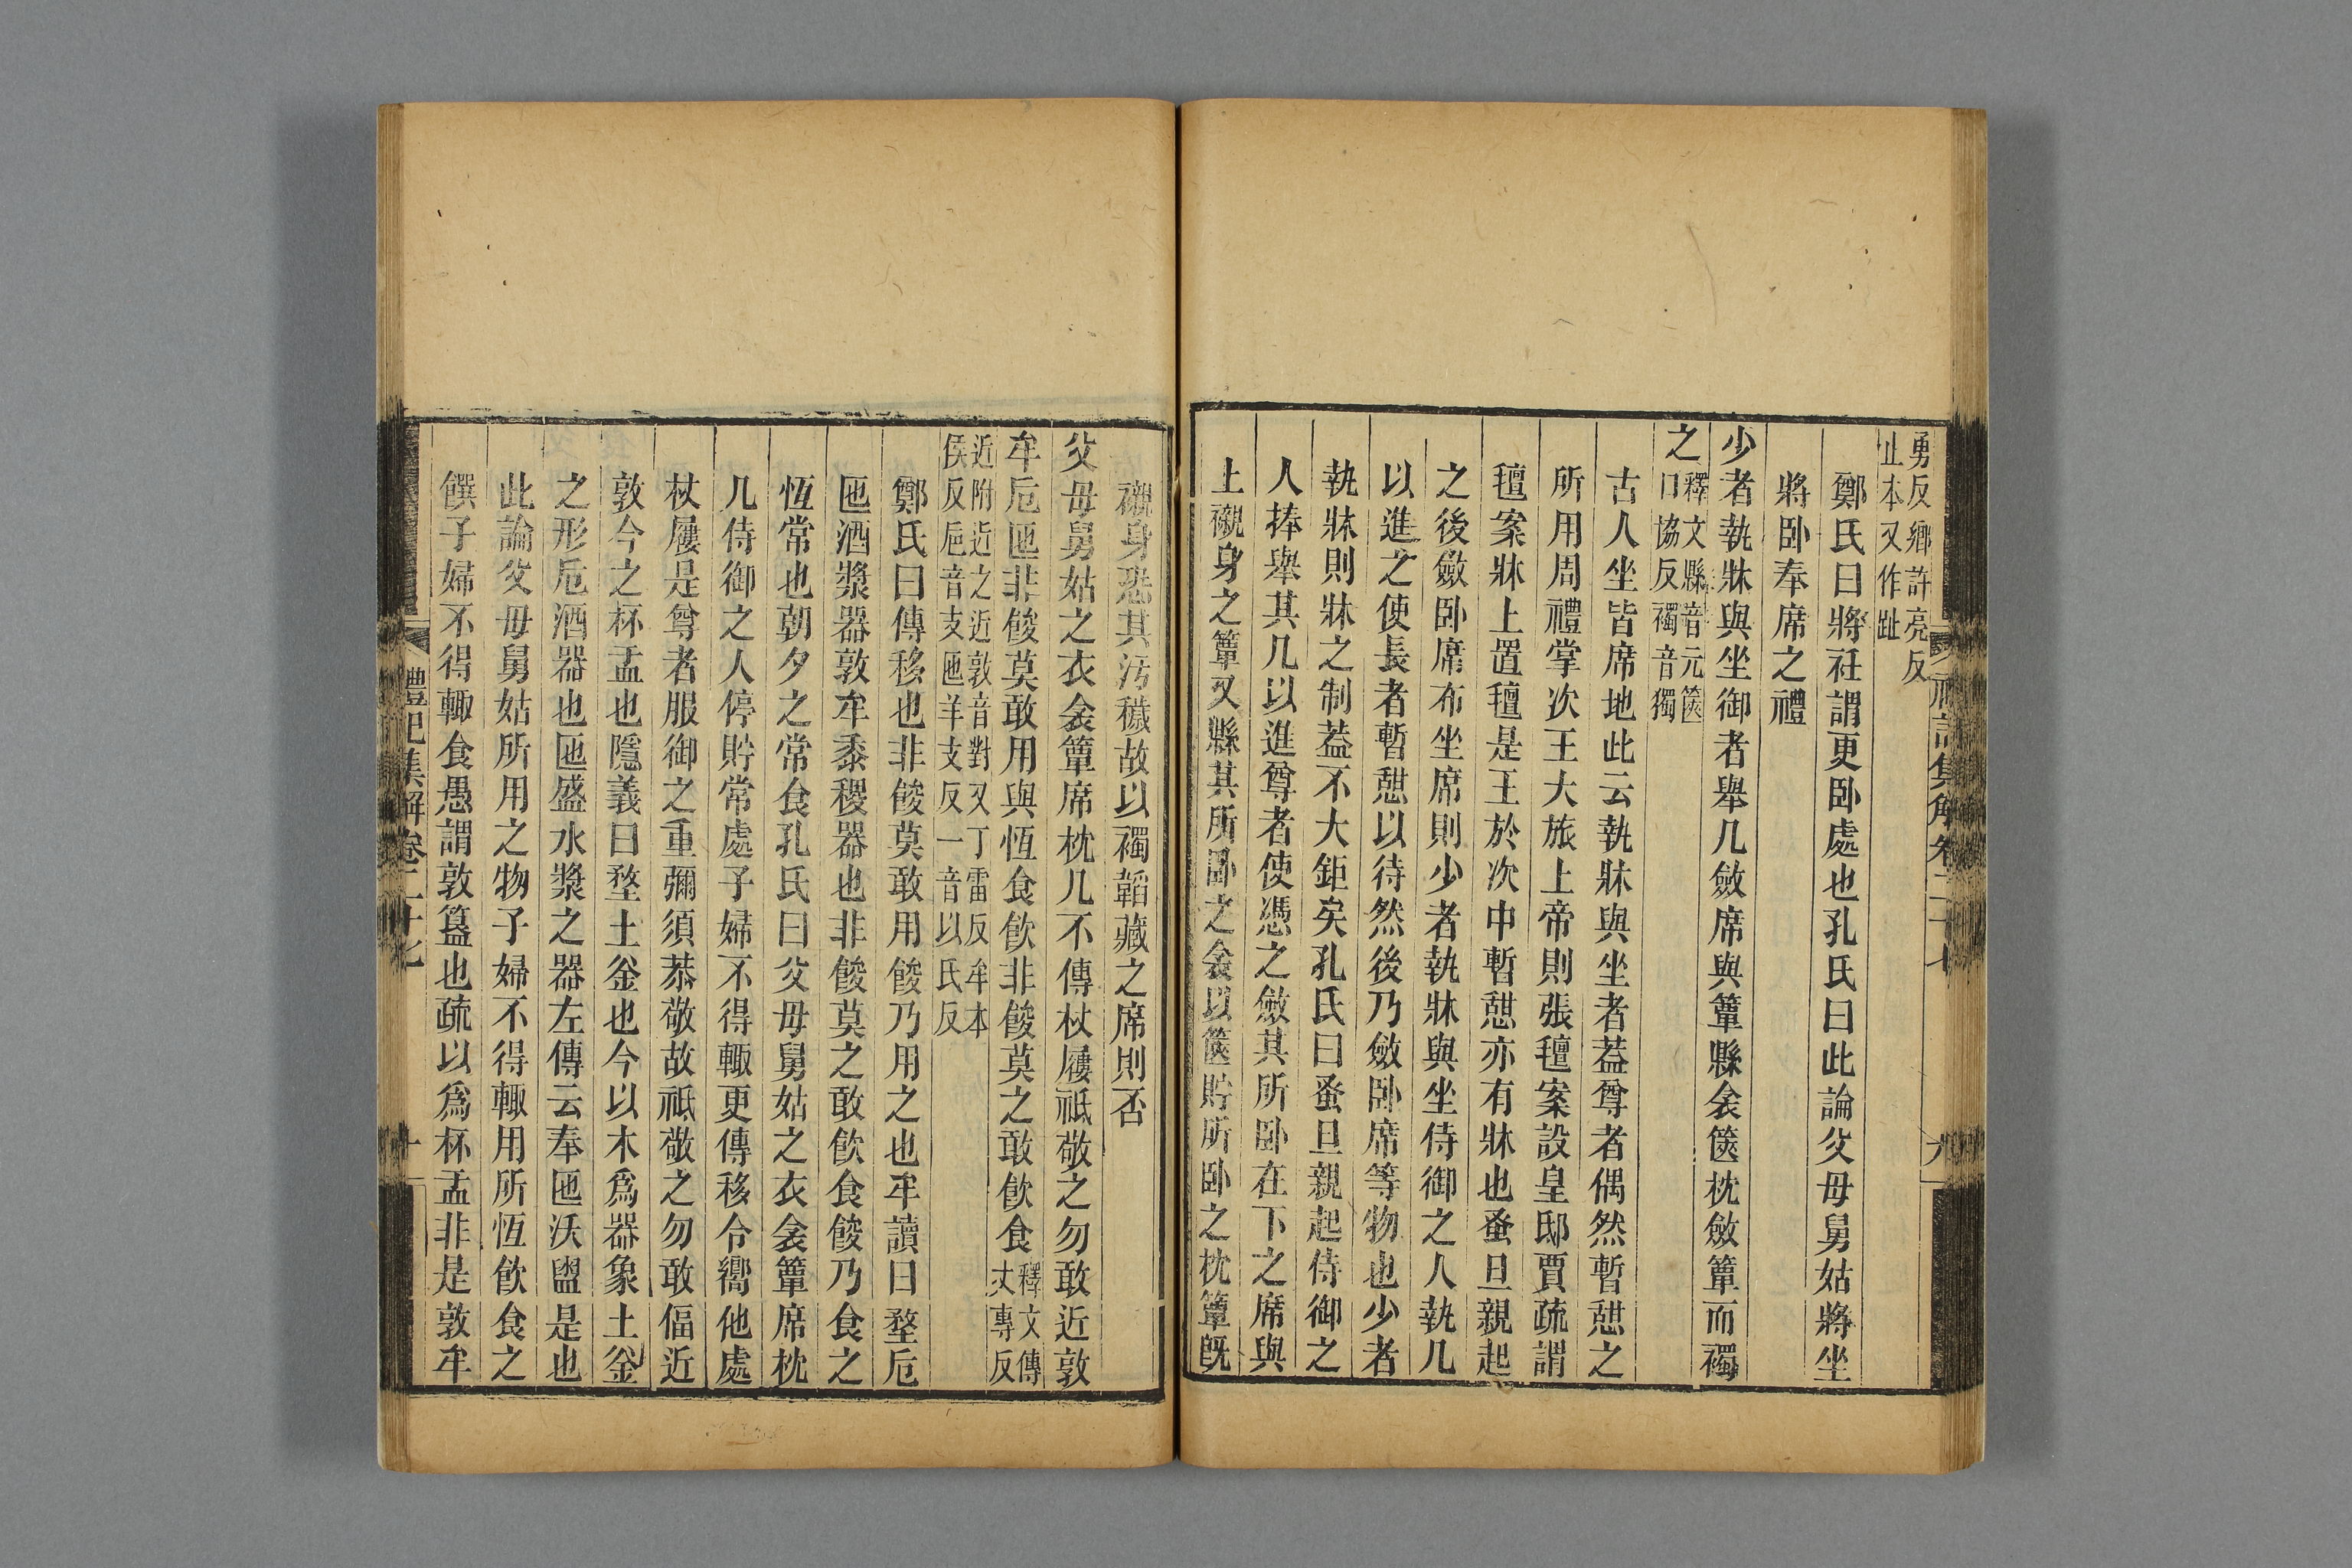 勇反鄉許亮反
止本又作趾
鄭氏曰將衽謂更卧處也孔氏曰此論父母舅姑將坐
將卧奉席之禮
少者執牀與坐御者舉几斂席與簟縣衾篋枕斂簟而襡
之釋文縣音元篋
口協反襡音獨
古人坐皆席地此云執牀與坐者蓋尊者偶然暫憇之
所用周禮掌次王大旅上帝則張氊案設皇邸賈疏謂
氊案牀上置氊是王於次中暫憇亦有牀也蚤旦親起
之後斂卧席布坐席則少者執牀與坐侍御之人執几
以進之使長者暫憇以待然後乃斂卧席等物也少者
執牀則牀之制蓋不大鉅矣孔氏曰蚤旦親起侍御之
人捧舉其几以進尊者使憑之斂其所卧在下之席與
上襯身之簟又縣其所卧之衾以篋貯所卧之枕簟旣
襯身恐其污穢故以襡韜藏之席則否
父母舅姑之衣衾簟席枕几不傳杖屨祗敬之勿敢近敦
牟卮匜非餕莫敢用與恆食飮非餕莫之敢飮食釋文傳
丈專反
近附近之近敦音對又丁雷反牟本
侯反卮音支匜羊支反一音以氏反
鄭氏曰傳移也非餕莫敢用餕乃用之也牟讀曰堥卮
匜酒漿器敦牟黍稷器也非餕莫之敢飮食餕乃食之
恆常也朝夕之常食孔氏曰父母舅姑之衣衾簟席枕
几侍御之人停貯常處子婦不得輒更傳移令嚮他處
杖屨是尊者服御之重彌須恭敬故祗敬之勿敢偪近
敦今之杯盂也隱義曰堥土釜也今以木爲器象土釜
之形卮酒器也匜盛水漿之器左傳云奉匜沃盥是也
此論父母舅姑所用之物子婦不得輒用所恆飮食之
饌子婦不得輒食愚謂敦簋也疏以爲杯盂非是敦牟
禮記集解卷二十七